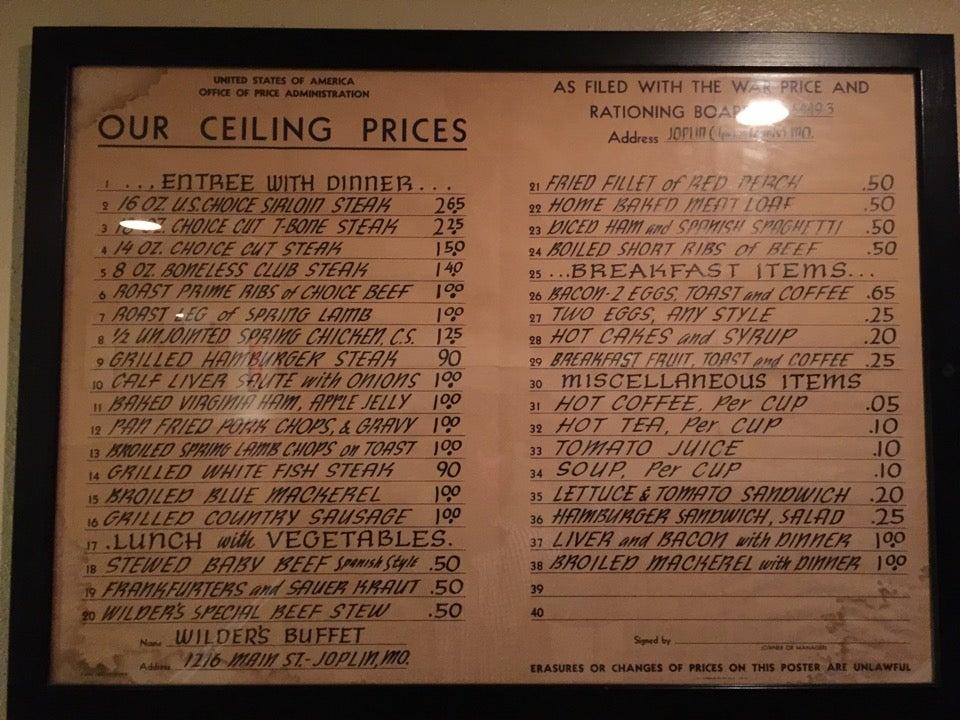 UNITED STATES OF AMERICA
OFFICE OF PRICE ADMINISTRATION
OUR CEILING PRICES
1 ... ENTREE WITH DINNER...
2 16 OZ. U.S. CHOICE SIRLOIN STEAK 2.65
3 OZ. CHOICE CUT T-BONE STEAK 2.25
4 14 OZ. CHOICE CUT STEAK 1.50
5 8 OZ. BONELESS CLUB STEAK 1.40
6 ROAST PRIME RIBS of CHOICE BEEF 1.00
7 ROAST LEG of SPRING LAMB 1.00
8 1/2 UNJOINTED SPRING CHICKEN, C.S. 1.25
9 GRILLED HAMBURGER STEAK 90
10 CALF LIVER SAUTE with ONIONS 1.00
11 BAKED VIRGINIA HAM, APPLE JELLY 1.00
12 PAN FRIED PORK CHOPS, & GRAVY 1.00
13 BROILED SPRING LAMB CHOPS on TOAST 1.00
14 GRILLED WHITE FISH STEAK 90
15 BROILED BLUE MACKEREL 1.00
16 GRILLED COUNTRY SAUSAGE 1.00
17 .LUNCH with VEGETABLES.
18 STEWED BABY BEEF Spanish Style .50
19 FRANKFURTERS and SAUER KRAUT .50
20 WILDER'S SPECIAL BEEF STEW .50
Name WILDER'S BUFFET
Address 1216 MAIN ST.-JOPLIN, MO.
AS FILED WITH THE WAR PRICE AND
RATIONING BOARD
Address JOPLIN MO.
21 FRIED FILLET of RED PERCH .50
22 HOME BAKED MEAT LOAF .50
23 DICED HAM and SPANISH SPAGHETTI .50
24 BOILED SHORT RIBS of BEEF .50
25 ...BREAKFAST ITEMS...
26 BACON-2 EGGS, TOAST and COFFEE .65
27 TWO EGGS, ANY STYLE .25
28 HOT CAKES and SYRUP .20
29 BREAKFAST FRUIT, TOAST and COFFEE .25
30 MISCELLANEOUS ITEMS
31 HOT COFFEE, Per CUP .05
32 HOT TEA, Per CUP .10
33 TOMATO JUICE .10
34 SOUP, Per CUP .10
35 LETTUCE & TOMATO SANDWICH .20
36 HAMBURGER SANDWICH, SALAD .25
37 LIVER and BACON with DINNER 1.00
38 BROILED MACKEREL with DINNER 1.00
39
40
Signed by
(OWNER OR MANAGER)
ERASURES OR CHANGES OF PRICES ON THIS POSTER ARE UNLAWFUL